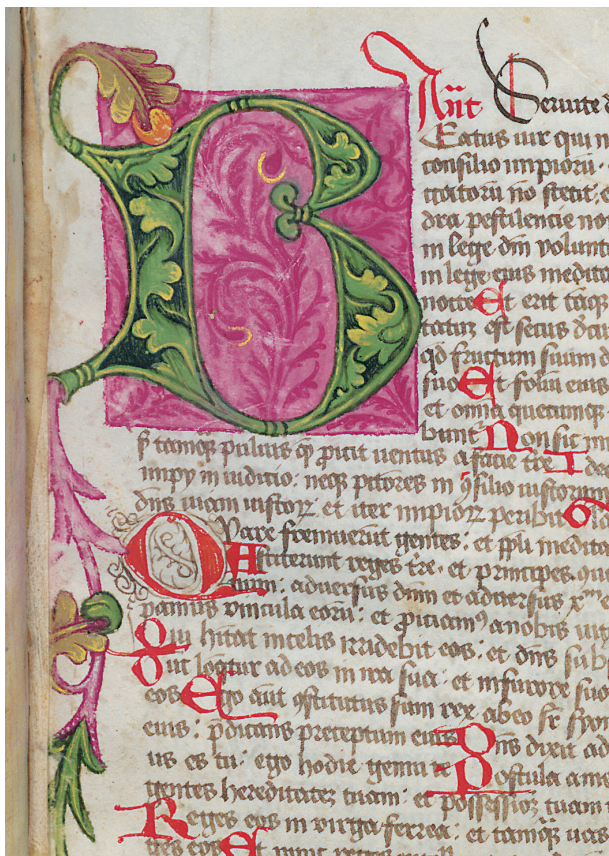 Añt Seruite d
BEatus uir qui n
consilio impioru ·
ctatoru no stetit · e
dra pestilencie no
in lege dni volunt
in lege eius medita
nocte Et erit tanq
tatu est secus decu
qd fructum suum d
suo Et foliu eius
et omia quecumq
bunt Non sic im
s tamq puluis que proicit uentus a facie tre I deo
impy in iuditio · neq pctores in consilio iustorum
dns uiam iustor et iter impior peribit
Quare fremuerut gentes · et ppli medita
Astiterunt reges tre · et principes
unum · adversus dnm et adversus xpm
vincula eoru · et proiciamus a nobis iu
Qui hitat in celis irridebit eos · et dns sub
loqtur ad eos in ira sua · et in furore suo
eos Ego aut constitutus sum rex ab eo sr syon
eius · pdicans preceptum eius Dns dixit ad
us es tu · ego hodie genui te Postula a me
gentes hereditate tuam · et possessio tuam
Reges eos in virga ferrea · et tamq uas